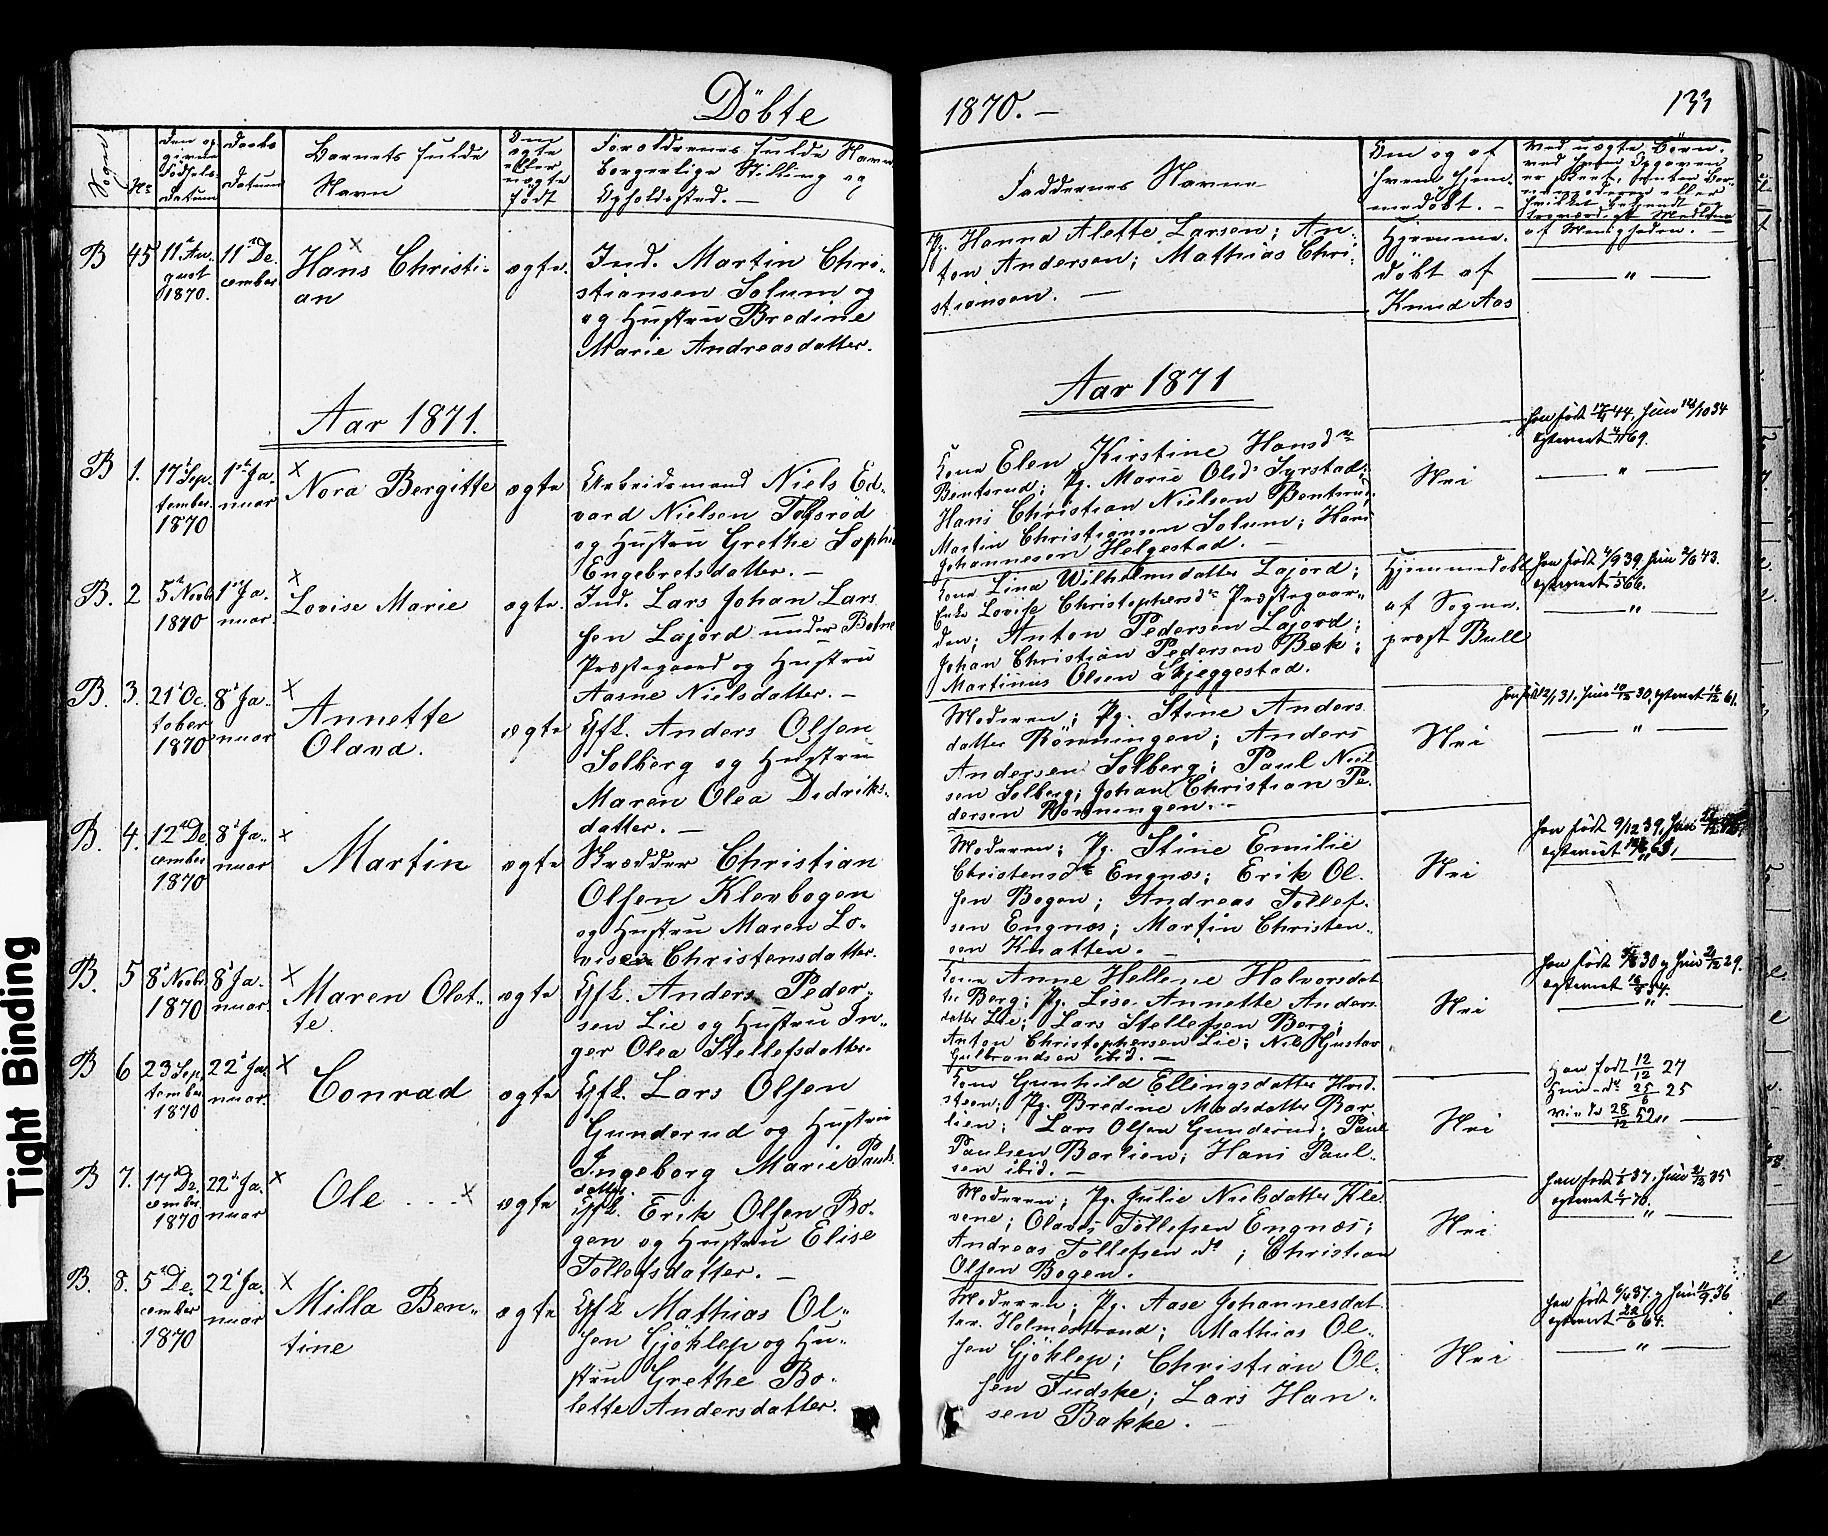 Døbte
1870.—
133
Sogne
No
Den op
givne
Fødsels
Datum
Daabs
Datum
Barnets fulde
Navn
Om
ægte
eller
uægte
født
Forældrenes fulde Navne
borgerlige Stilling og
Opholdssted. —
Faddernes Navne
Om og af
hvem hjem-
medøbt. —
Ved uægte Børn,
ved hvem Opgaven
er skeet, enten Bar-
nemoderen eller
hvilket bekjendt og
troværdigt Medlem
af Menigheden. —
B
45
11te Au-
gust
1870.
11te De-
cember
Hans Christi-
an
ægte.
Ind. Martin Chri-
stiansen Solum og
og Hustru Bredine
Marie Andreasdatter.
Pg. Hanna Alette Larsen; An-
ton Andersen; Mathias Chri-
stiansen. —
Hjemme-
døbt af
Knud Aas
— " —
Aar 1871.
Aar 1871
B
1.
17de Sep-
tember
1870
1ste Ja-
nuar
Nora Bergitte
ægte
Arbeidsmand Niels Ed-
vard Nielsen Tofsrød
og Hustru Grethe Sophie
Engebretsdatter. —
Kone Elen Kirstine Hansdr
Bentsrud; Pg. Marie Olsdr Syrstad;
Hans Christian Nielsen Bentsrud;
Martin Christiansen Solum; Hans
Johannesen Helgestad. —
Nei
— " —
B.
2
5te Novbr
1870
1ste Ja-
nuar
Lovise Marie
ægte.
Ind. Lars Johan Lars
sen Lajord under Botne
Præstegaard og Hustru
Aasne Nielsdatter. —
Kone Lina Wilhelmsdatter Lajord;
Enke Lovise Christophersdr Præstegaar-
den; Anton Pedersen Lajord;
Johan Christian Pedersen Bæk;
Martinus Olsen Skjeggestad.
Hjemmedøbt
af Sogne-
præst Bull
— " —
B.
3.
21de Oc-
tober
1870
8de Ja-
nuar
Annette
Olava.
ægte
Gfk. Anders Olsen
Solberg og Hustru
Maren Olea Didriks-
datter. —
Moderen; Pg. Stine Anders
datter Rønningen; Anders
Andersen Solberg; Paul Niel
sen Solberg; Johan Christian Pe-
dersen Rønningen. —
Nei
— " —
B.
4.
12te De-
cember
1870
8de Ja-
nuar
Martin
ægte
Skrædder Christian
Olsen Klevbogen
og Hustru Maren Lo-
vise Christensdatter.
Moderen; Pg. Stine Emilie
Christensdr Engnæs; Erik Ol-
sen Bogen; Andreas Tollef-
sen Engnæs; Martin Christen-
sen Knatten. —
Nei
B.
5
8de Novbr
1870
8de Ja-
nuar.
Maren Olet-
te.
ægte
Gfk. Anders Peder-
sen Lie og Hustru In-
ger Olea Stellefsdatter.
Kone Anne Hellene Halvorsdat
ter Berg; Pg. Lise Annette Anders
datter Lie; Lars Stellefsen Berg;
Anton Christophersen Lie; Nils Gustav
Gulbrandsen ibid. —
Nei
— " —
B
6
23 Sep-
tember
1870
22de Ja-
nuar.
Conrad
ægte
Gfk. Lars Olsen
Gunderud og Hustru
Ingeborg Marie Pauls-
datter.
Kone Gunhild Ellingsdatter Hvid-
steen; Pg. Bredine Madsdatter Bar-
lien; Lars Olsen Gunderud; Paul
Paulsen Barlien; Hans Paul-
sen ibid. —
Nei
Han født 12/12 27
Hun do 25/6 25
Viede 28/12 52
B
7.
17de De-
cember
1870
22de Ja-
nuar
Ole
ægte
Gfk. Erik Olsen Bo-
gen og Hustru Elise
Tollefsdatter. —
Moderen; Pg. Julie Nielsdatter Kle-
vene; Olaves Tollefsen Engnæs;
Andreas Tollefsen do; Christian
Olsen Bogen.
Nei
— " —
B.
8.
5te De-
cember
1870
22de Ja-
nuar
Milla Ben-
tine
ægte
Gfk Mathias Ol-
sen Gjøklep og Hu-
stru Grethe Bo-
lette Andersdatter.
Moderen; Pg. Aase Johannesdat
ter Holmestrand; Mathias Ol-
sen Gjøklep; Christian Ol-
sen Tudske; Lars Han-
sen Bakke. —
Nei
— " —
Tight Binding